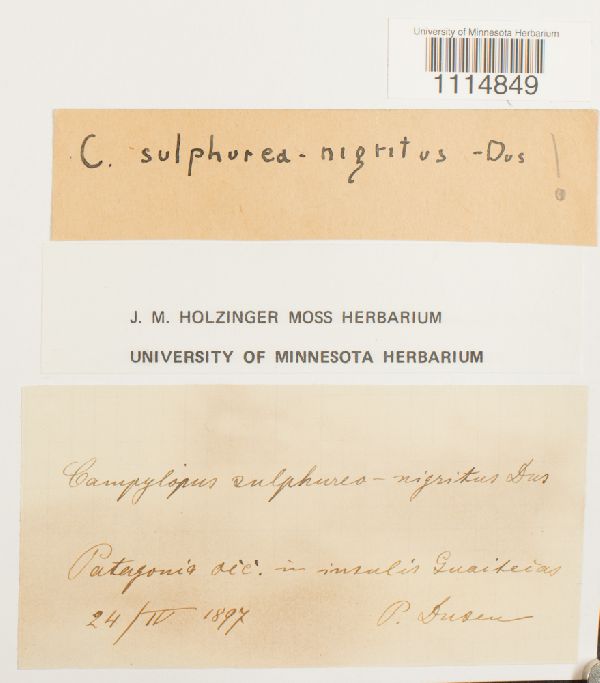 University of Minnesota Herbarium
1114849
C. sulphurea-nigritus -Dus !
J. M. HOLZINGER MOSS HERBARIUM
UNIVERSITY OF MINNESOTA HERBARIUM
Campylopus sulphureo-nigritus Dus
Patagonia occ. in insulis Guaitecas
24/IV 1897 P. Dusen